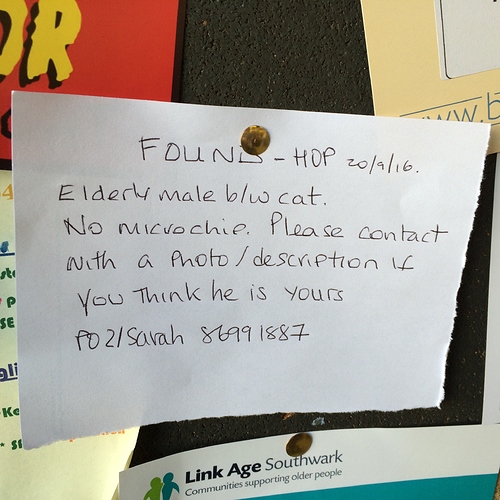 OR
www.b
FOUND - HOP 20/9/16.
Elderly male b/w cat.
No microchip. Please contact
with a photo/description if
you think he is yours
PO2/Sarah 86991887
Link Age Southwark
Communities supporting older people